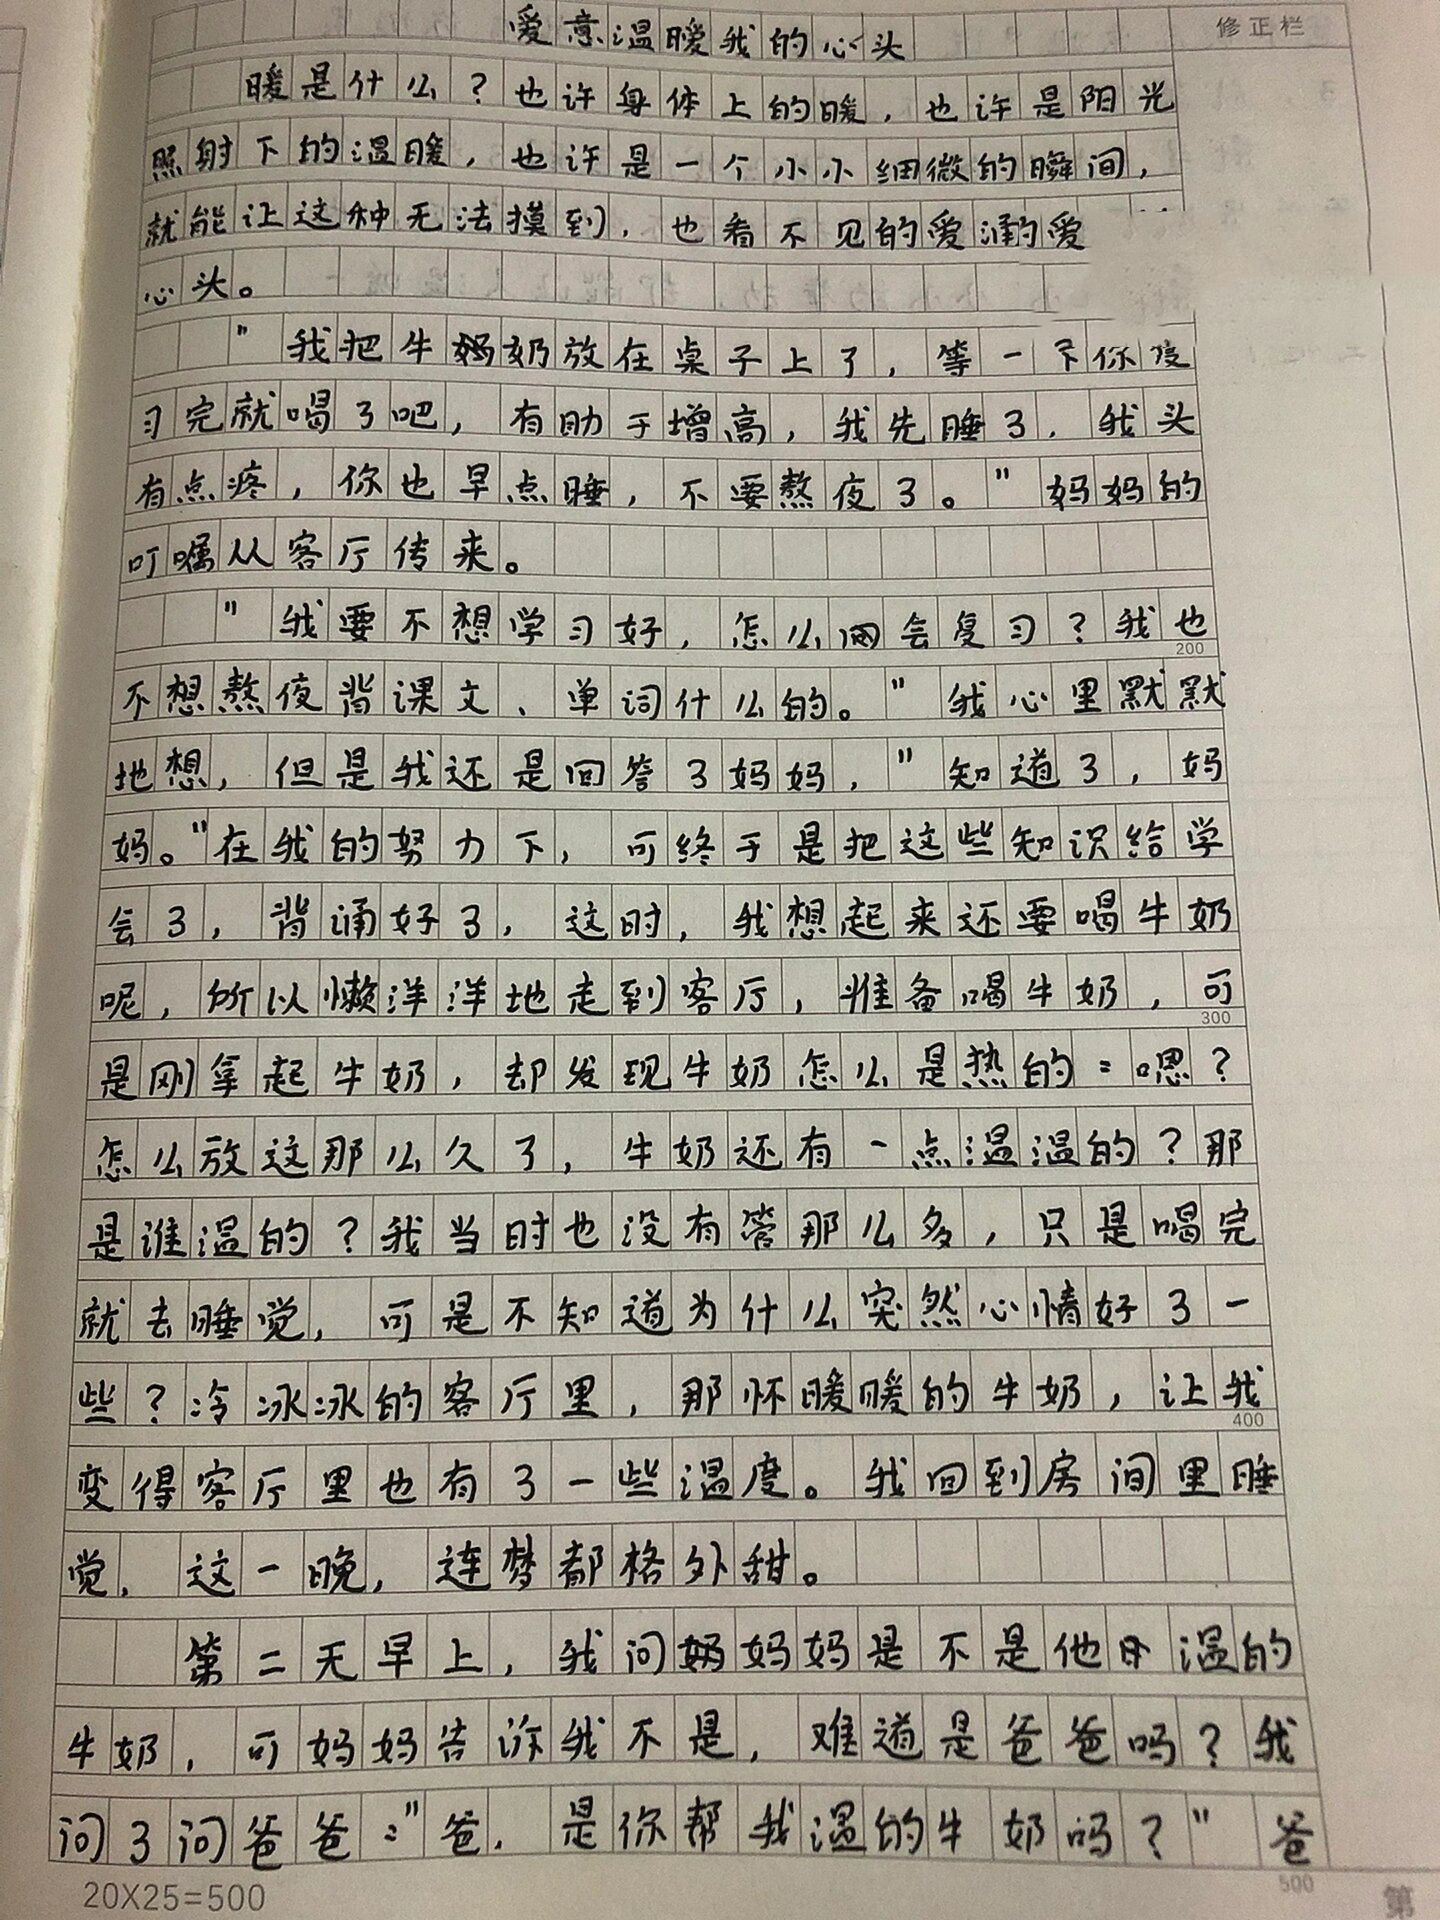 爱意温暖我的心头
修正栏
暖是什么？也许身体上的暖，也许是阳光
照射下的温暖，也许是一个小小细微的瞬间，
就能让这种无法摸到，也看不见的爱涌的爱
心头。
"我把牛奶放在桌子上了，等一下你复
习完就喝了吧，有助于增高，我先睡了，我头
有点疼，你也早点睡，不要熬夜了。"妈妈的
叮嘱从客厅传来。
"我要不想学习好，怎么会复习？我也
200
不想熬夜背课文、单词什么的。"我心里默默
地想，但是我还是回答了妈妈，"知道了，妈
妈。"在我的努力下，可终于是把这些知识给学
会了，背诵好了，这时，我想起来还要喝牛奶
呢，所以懒洋洋地走到客厅，准备喝牛奶，可
300
是刚拿起牛奶，却发现牛奶怎么是热的：嗯？
怎么放这那么久了，牛奶还有一点温温的？那
是谁温的？我当时也没有管那么多，只是喝完
就去睡觉，可是不知道为什么突然心情好了一
些？冷冰冰的客厅里，那怀暖暖的牛奶，让我
400
变得客厅里也有了一些温度。我回到房间里睡
觉，这一晚，连梦都格外甜。
第二天早上，我问妈妈是不是他温的
牛奶，可妈妈告诉我不是，难道是爸爸吗？我
问了问爸爸："爸，是你帮我温的牛奶吗？"爸
20X25=500
500
第